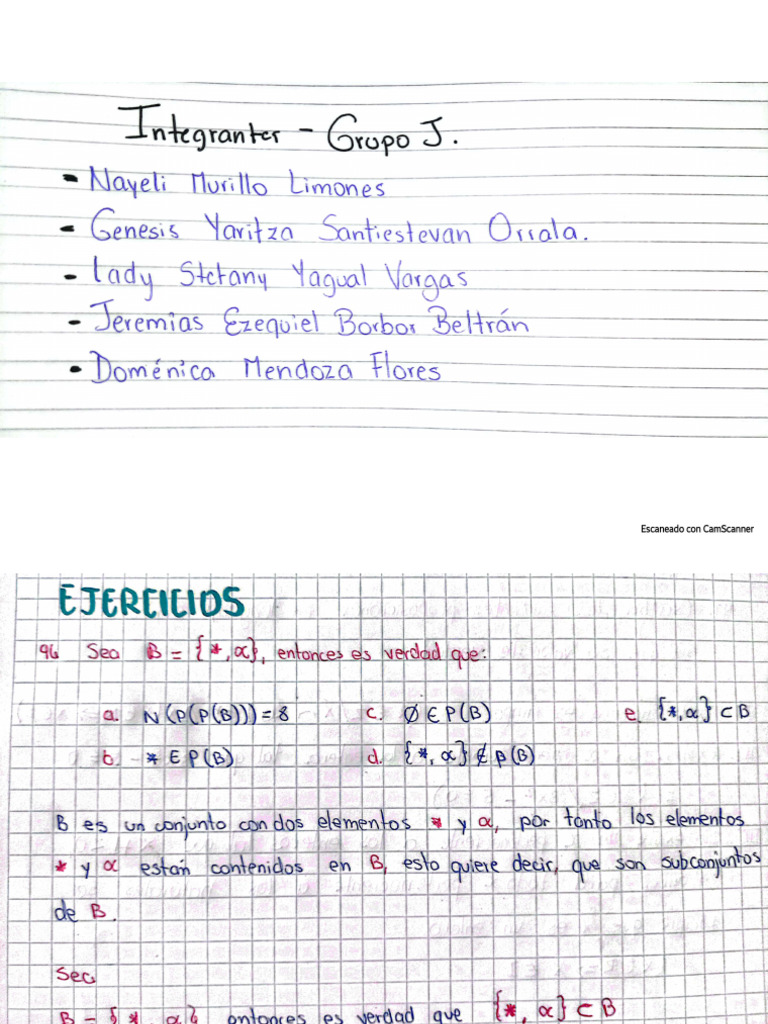 Integrantes - Grupo J.
- Nayeli Murillo Limones
- Genesis Yaritza Santiestevan Orrala.
- Lady Stefany Yagual Vargas
- Jeremias Ezequiel Borbor Beltrán
- Doménica Mendoza Flores
Escaneado con CamScanner
EJERCICIOS
96 Sea B = {*, α}, entonces es verdad que:
a. N(P(P(B))) = 8 c. ∅ ∈ P(B) e. {*, α} ⊂ B
b. * ∈ P(B) d. {*, α} ∉ P(B)
B es un conjunto con dos elementos * y α, por tanto los elementos
* y α están contenidos en B, esto quiere decir, que son subconjuntos
de B.
Sea
B = {*, α} entonces es verdad que {*, α} ⊂ B